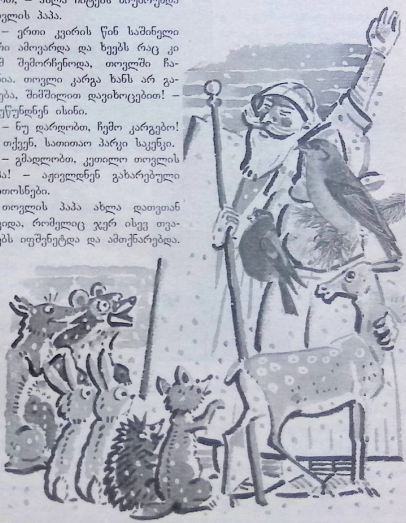 ვლის პაპა.
– ერთი კვირის წინ საშინელი
რი ამოვარდა და ხეებს რაც კი
მ შემორჩენოდა, თოვლში ჩა-
ნია. თოვლი კარგა ხანს არ გა-
ება, შიმშილით დავიხოცებით! –
უწუნდნენ ისინი.
– ნუ დარდობთ, ჩემო კარგებო!
თქვენ, სათითაო პარკი საკენკი.
– გმადლობთ, კეთილო თოვლის
პა! – აჟივლდნენ გახარებული
თოსნები.
თოვლის პაპა ახლა დათვთან
ვიდა, რომელიც ჯერ ისევ თვა-
ებს იფშვნეტდა და ამთქნარებდა.